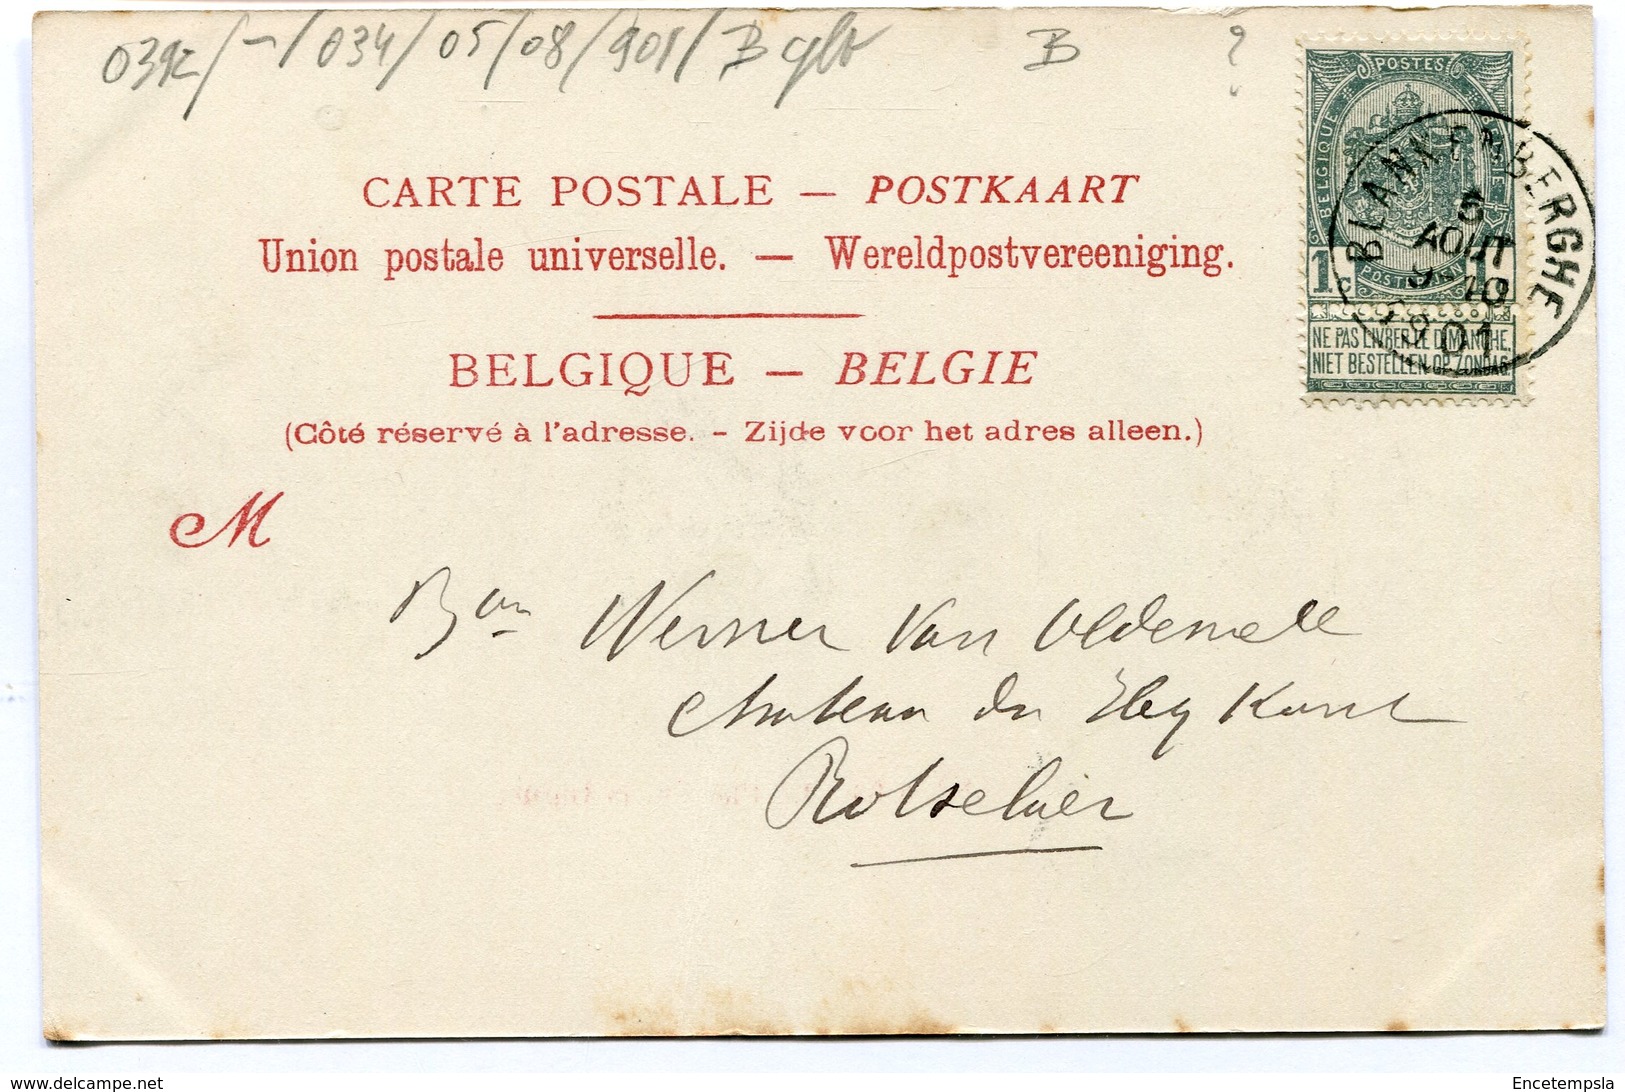 039z/-/034/05/08/901/B glt B ?
POSTES
BELGIQUE BELGIE
1c POSTERIJEN 1c
NE PAS LIVRER LE DIMANCHE.
NIET BESTELLEN OP ZONDAG.
BLANKENBERGHE
5
AOUT
9-10
1901
CARTE POSTALE — POSTKAART
Union postale universelle. — Wereldpostvereeniging.
BELGIQUE — BELGIE
(Côté réservé à l'adresse. - Zijde voor het adres alleen.)
M
Bon Werner Van Oldeneel
Chateau du Hey Kant
Rotselaer
www.delcampe.net
Encetempsla